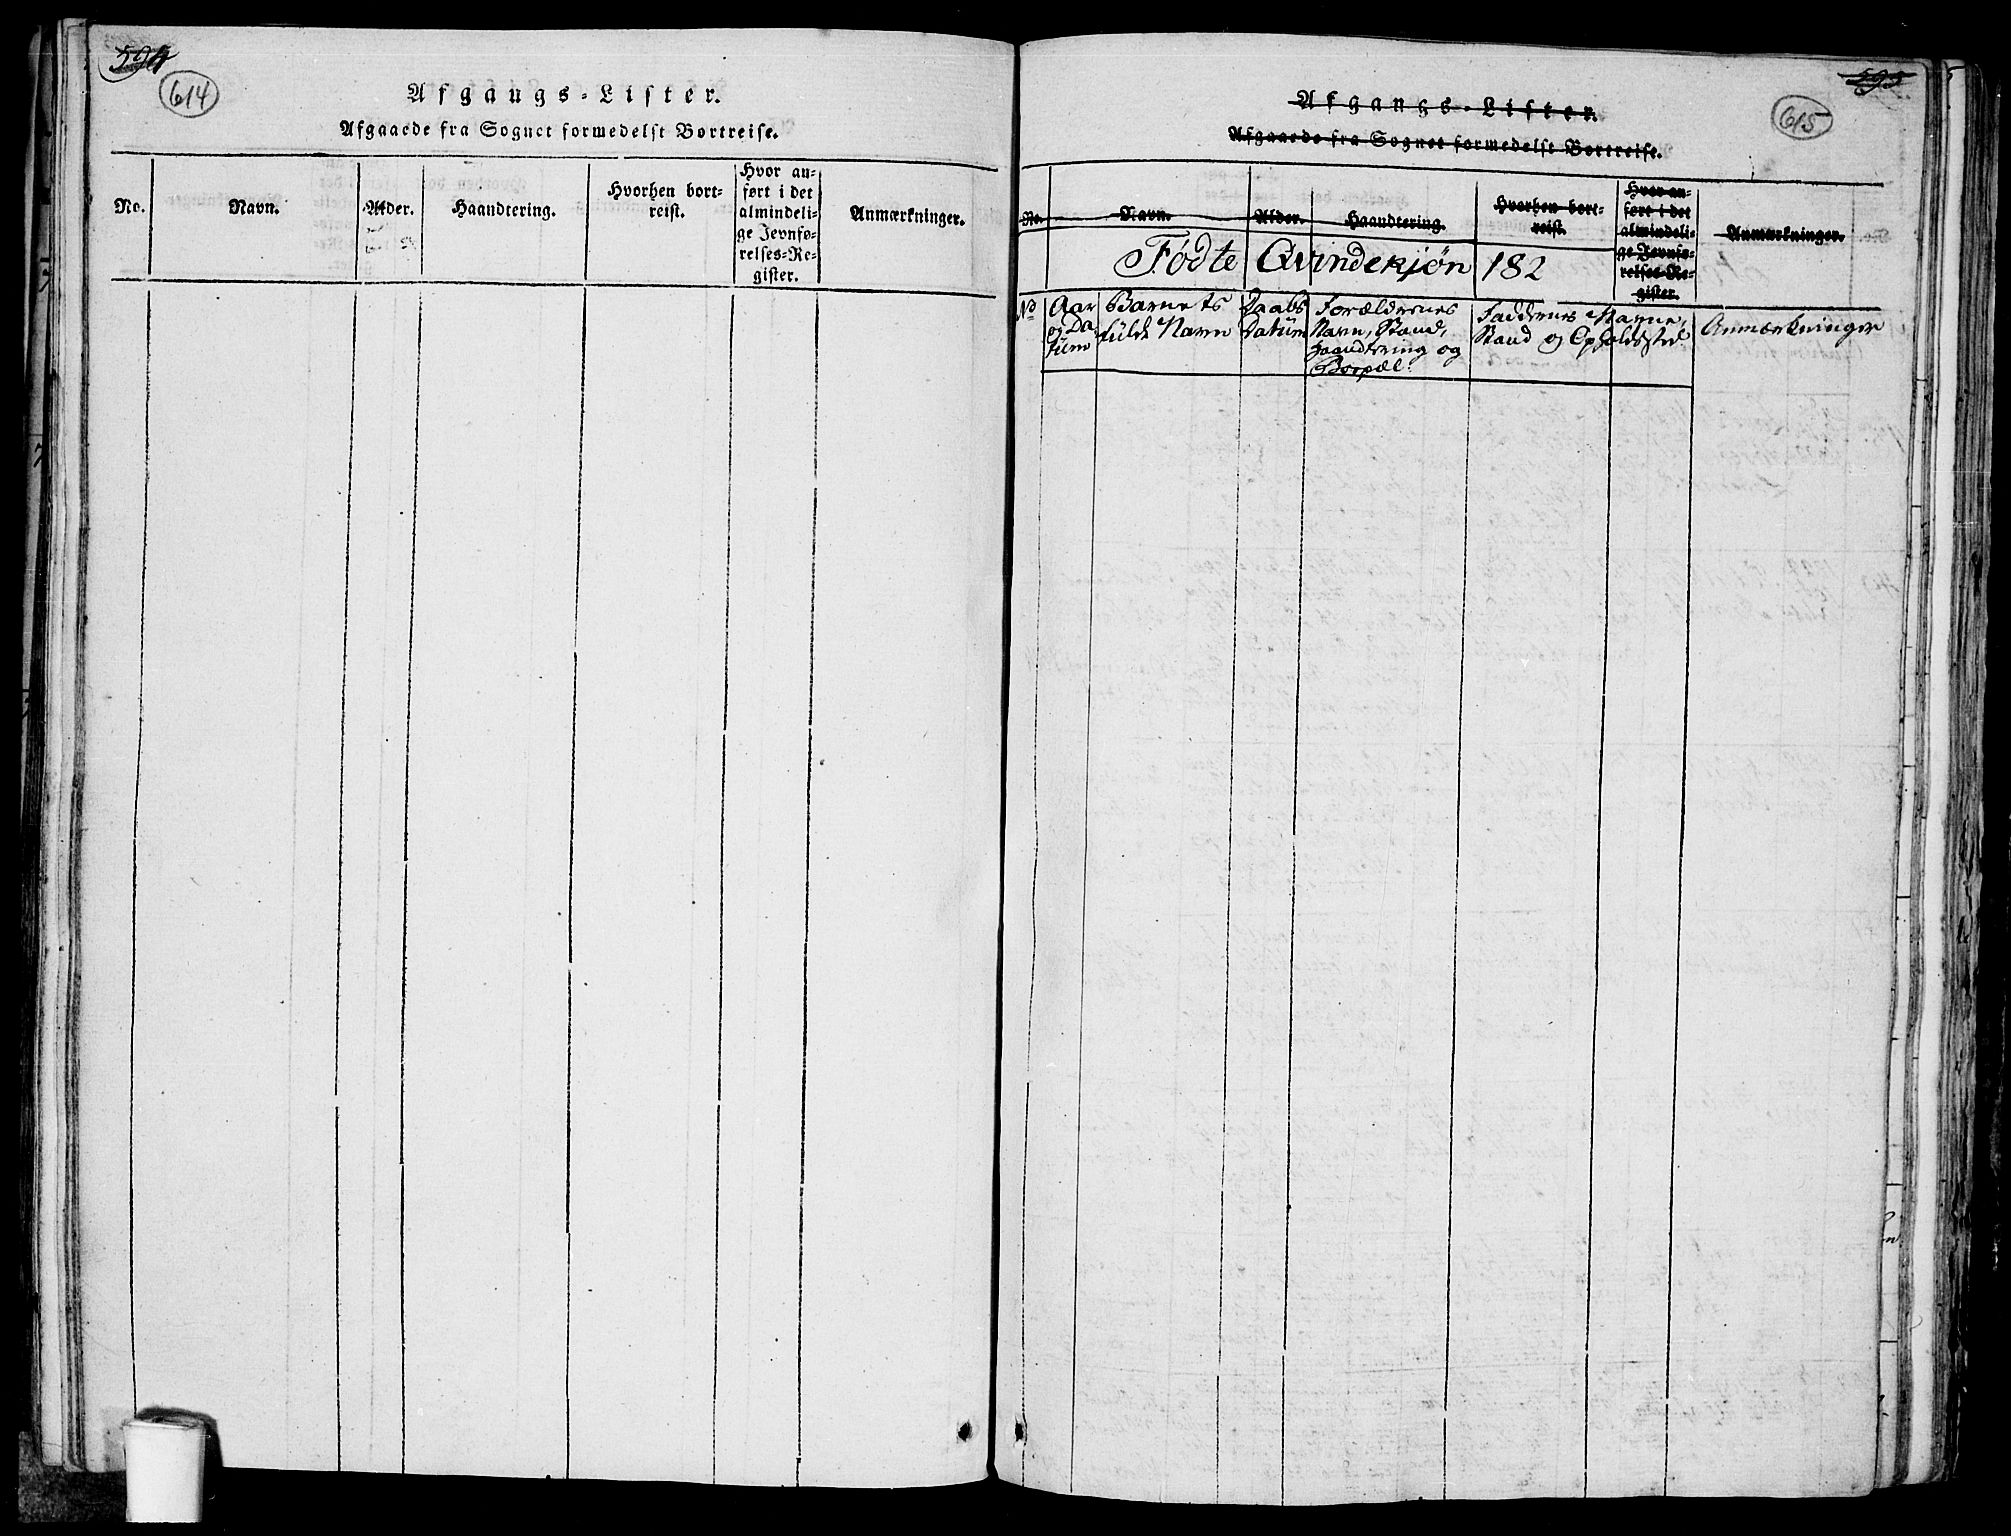 594
614
Afgangs-Lister.
Afgaaede fra Sognet formedelst Bortreise.
No.
Navn.
Alder.
Haandtering.
Hvorhen bort-
reist.
Hvor an-
ført i det
almindeli-
ge Jevnfø-
relses-Re-
gister.
Anmærkninger.
595
615
Afgangs-Lister.
Afgaaede fra Sognet formedelst Bortreise.
No.
Navn.
Alder.
Haandtering.
Hvorhen bort-
reist.
Hvor an-
ført i det
almindeli-
ge Jevnfø-
relses-Re-
gister.
Anmærkninger.
Fødte Qvindekjøn 182
No
Aar
og Da-
tum
Barnets
fulde Navn
Daabs
Datum
Forældrenes
Navn, Stand,
Haandtering og
Boepæl.
Faddernes Navne,
Stand og Opholdssted
Anmærkninger